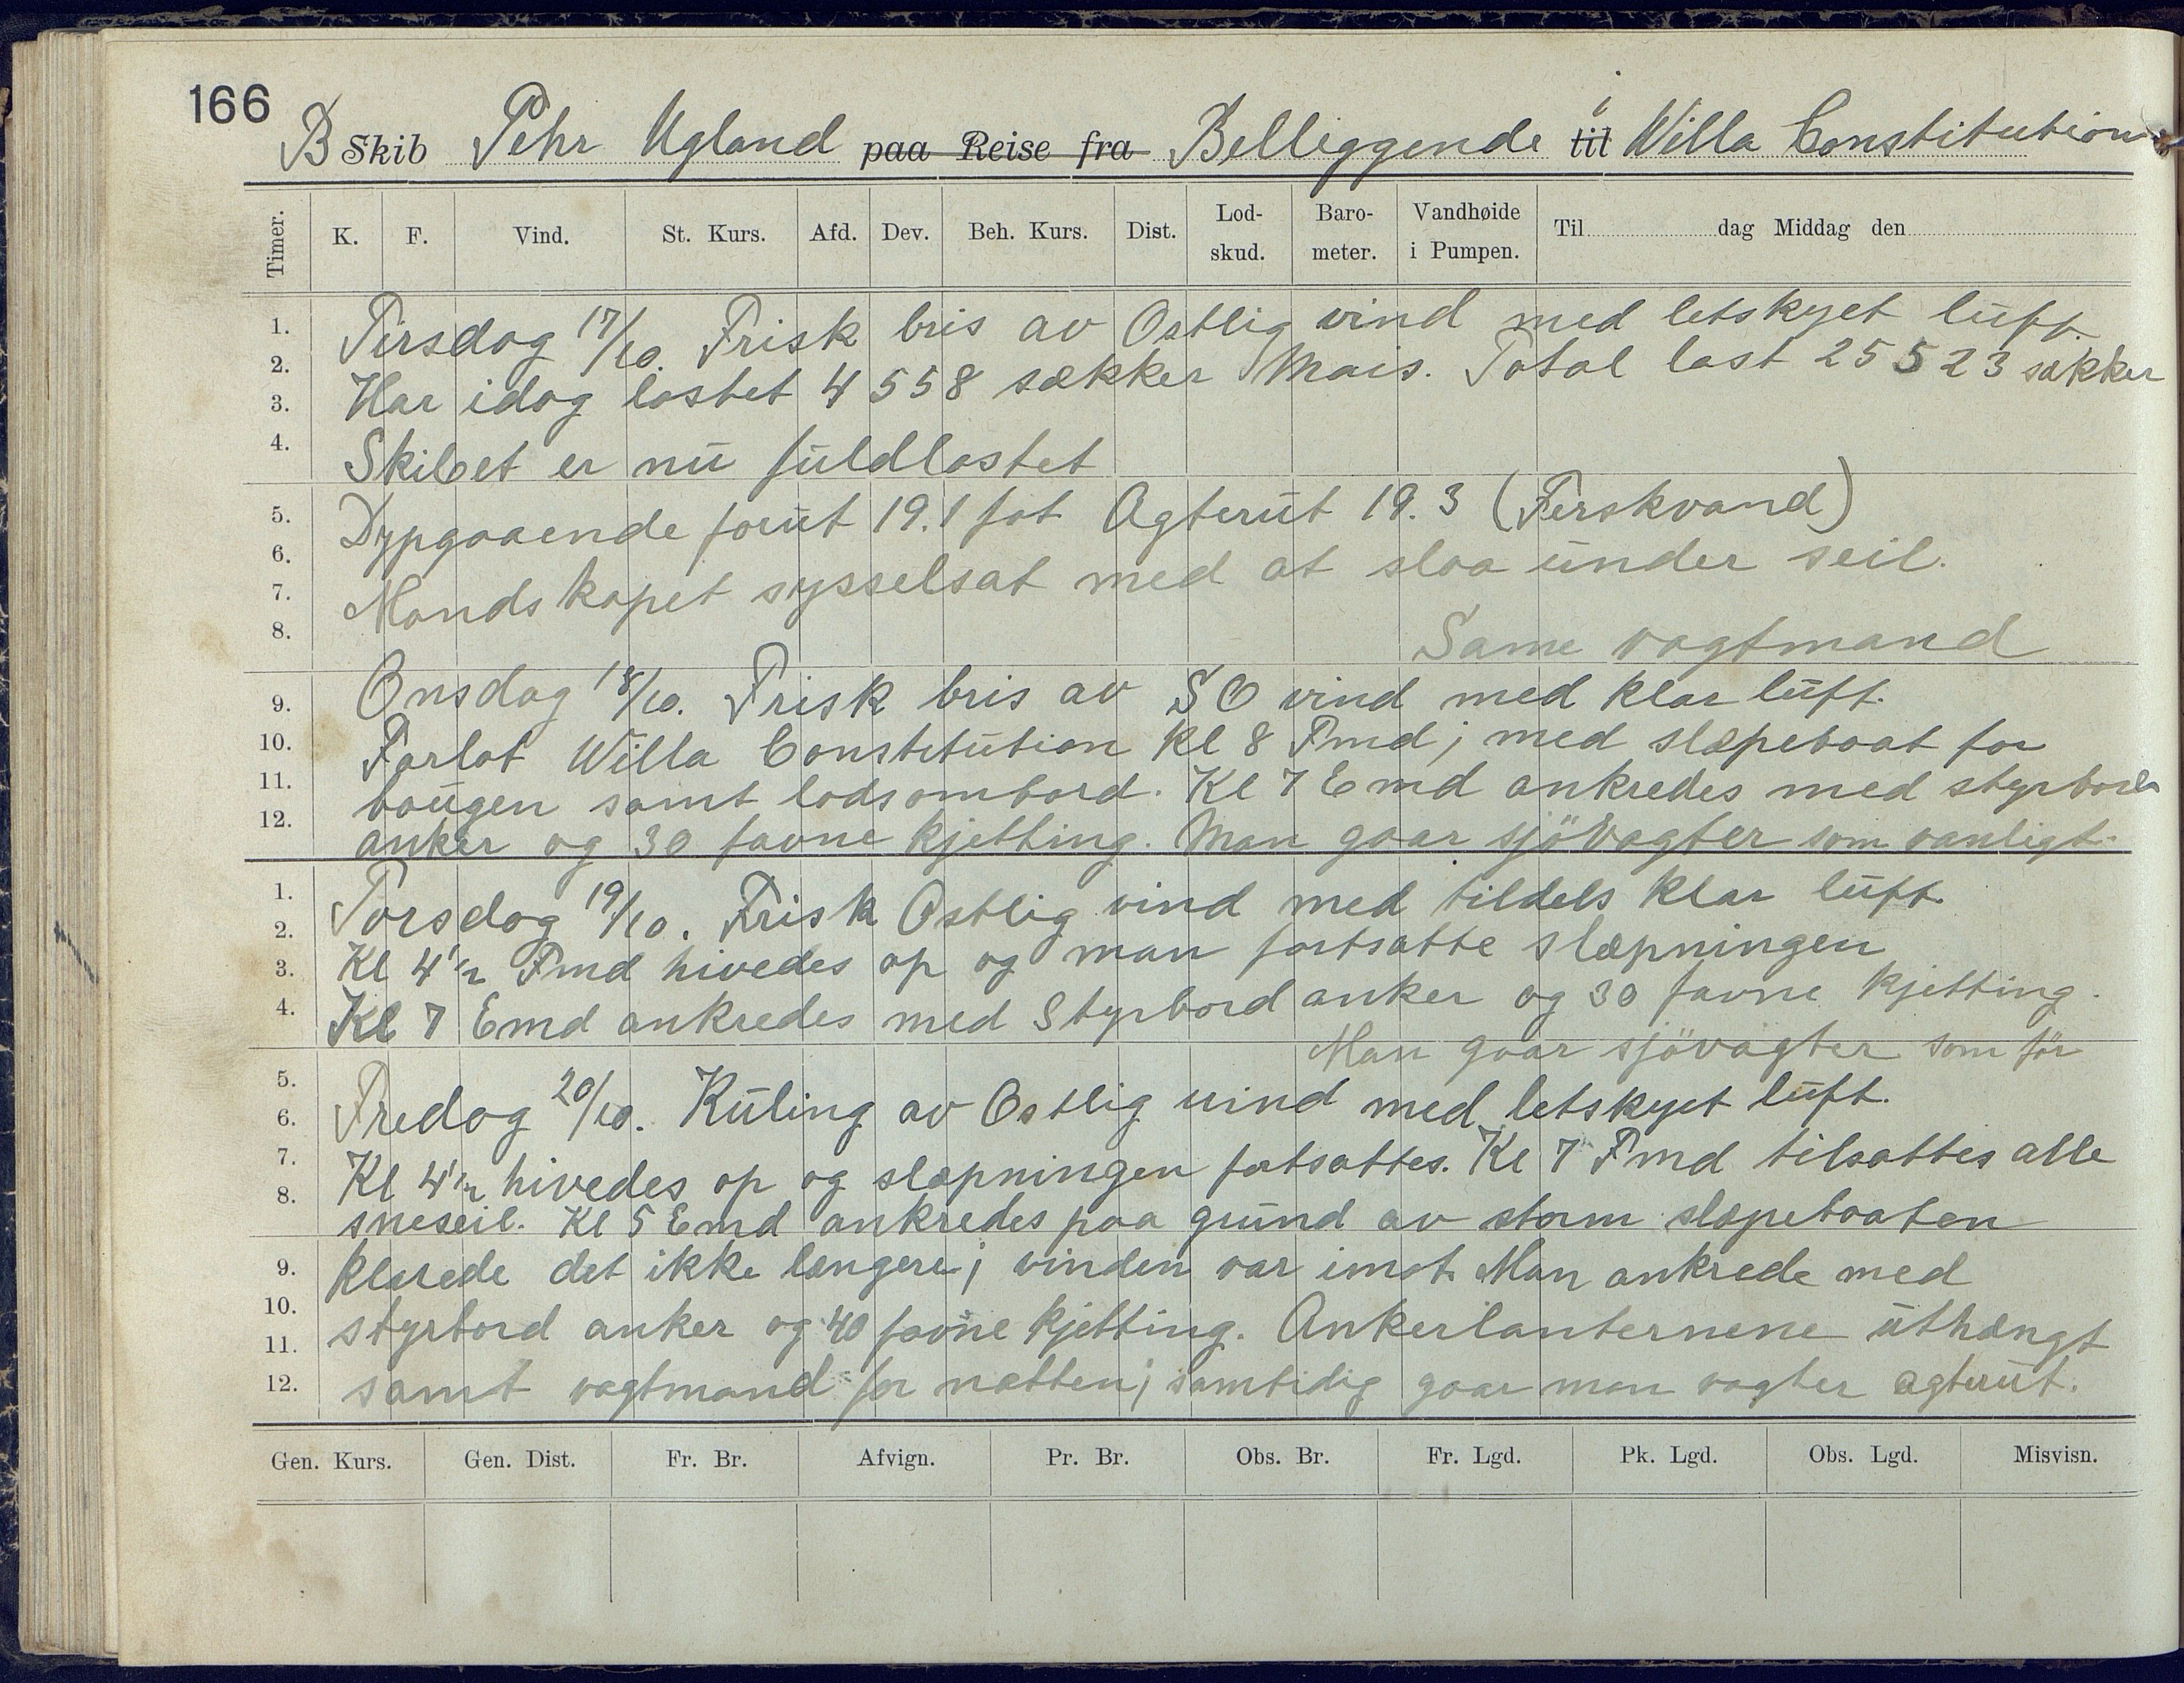 166
B Skib Pehr Ugland paa Reise fra Belliggende til i Willa Constitution
Timer. K. F. Vind. St. Kurs. Afd. Dev. Beh. Kurs. Dist. Lod-skud. Baro-meter. Vandhøide i Pumpen. Til dag Middag den
1. Tirsdag 17/10. Frisk bris av Ostlig vind med letskyet luft.
2. Har idag lastet 4558 sækker Mais. Total last 25523 sækker
3.
4. Skibet er nu fuldlastet
5. Dypgaaende forut 19.1 fot Agterut 19.3 (Ferskvand)
6.
7. Mandskapet sysselsat med at slaa under seil.
8. Same vagtmand
9. Onsdag 18/10. Frisk bris av SO vind med klar luft.
10. Forlot Willa Constitution Kl 8 Fmd; med slæpebaat for
11. bougen samt lods ombord. Kl 7 Emd ankredes med styrbords
12. anker og 30 favne kjetting. Man gaar sjövagter som vanligt.
1. Torsdag 19/10. Frisk Ostlig vind med tildels klar luft.
2. Kl 4 1/2 Fmd hivedes op og man fortsatte slæpningen
3.
4. Kl 7 Emd ankredes med Styrbord anker og 30 favne kjetting.
Man gaar sjövagter som för
5. Fredag 20/10. Kuling av Ostlig vind med letskyet luft.
6.
7. Kl 4 1/2 hivedes op og slæpningen fortsattes. Kl 7 Fmd tilsattes alle
8. sneseil. Kl 5 Emd ankredes paa grund av storm slæpebaaten
9. klarede det ikke længere; vinden var imot. Man ankrede med
10. styrbord anker og 40 favne kjetting. Ankerlanternene uthængt
11.
12. samt vagtmand for natten; samtidig gaar man vagter agterut.
Gen. Kurs. Gen. Dist. Fr. Br. Afvign. Pr. Br. Obs. Br. Fr. Lgd. Pk. Lgd. Obs. Lgd. Misvisn.